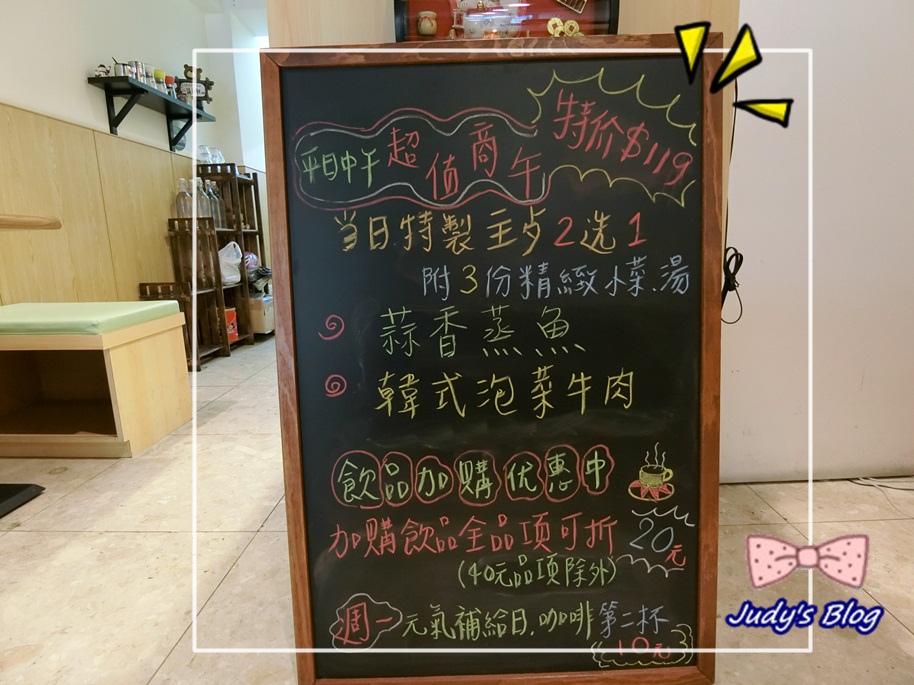 平日中午 超值商午 特价$119
当日特製主歺2选1
附3份精緻小菜.湯
蒜香蒸魚
韓式泡菜牛肉
飲品加購优惠中
加購飲品全品项可折20元
(40元品項除外)
週一 元氣補給日.咖啡第二杯
10元
Judy's Blog